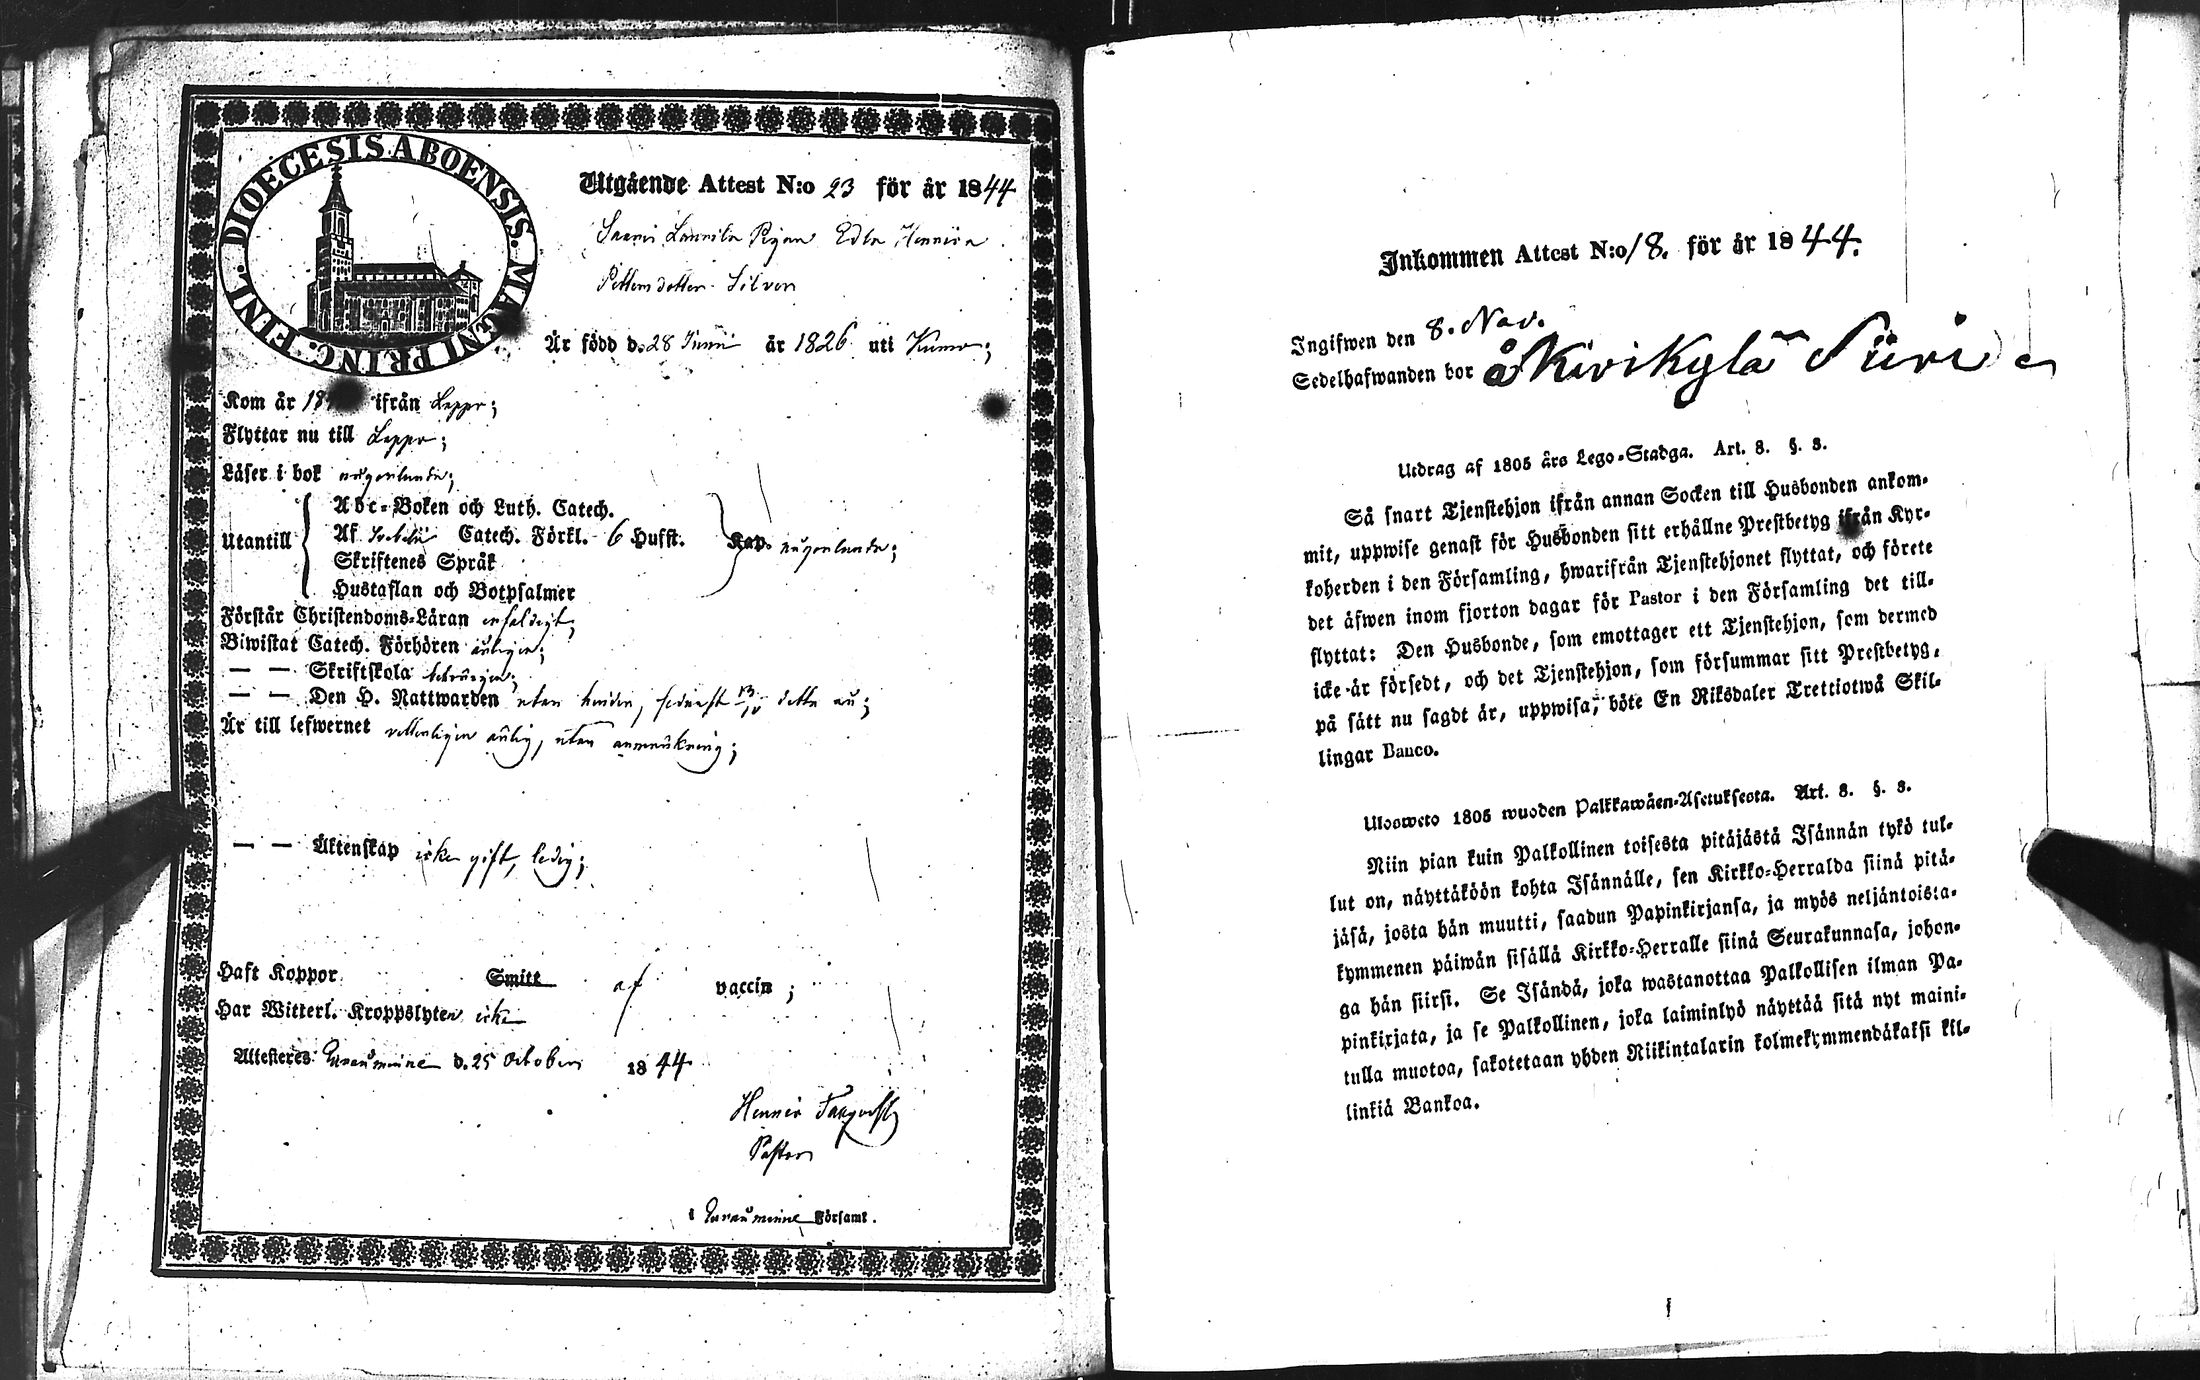 DIOECESIS ABOENSIS. MAGNI PRINC. FINL.
Utgående Attest N:o 23 för år 1844
Edla Henrica
Pettersdotter Silven
Är född d. 28 Junii år 1826 uti Kumo;
Kom år 18 ifrån Lappo;
Flyttar nu till Lappo;
Läser i bok någorlunda;
Utantill
Abc-Boken och Luth. Catech.
Af Catech. Förkl. 6 Hufst.
Skriftenes Språk
Hustaflan och Botpsalmer
Kap. någorlunda;
Förstår Christendoms-Läran enfaldigt;
Biwistat Catech. Förhören årligen;
— — Skriftskola
— — Den H. Nattwarden utan hinder, sednast detta år;
Är till lefwernet ärlig, utan anmärkning;
— — Äktenskap icke gift, ledig;
Haft Koppor Smitt af vaccin;
Har Witterl. Kroppslyten icke
Attesteres Euraåminne d. 25 October 1844
Pastor
i Euraåminne Församl.
Inkommen Attest N:o 18. för år 1844.
Ingifwen den 8. Nov.
Sedelhafwanden bor å Kivikylä
Utdrag af 1805 års Lego-Stadga. Art. 8. §. 3.
Så snart Tjenstehjon ifrån annan Socken till Husbonden ankom-
mit, uppwise genast för Husbonden sitt erhållne Prestbetyg ifrån Kyr-
koherden i den Församling, hwarifrån Tjenstehjonet flyttat, och förete
det äfwen inom fjorton dagar för Pastor i den Församling det till-
flyttat: Den Husbonde, som emottager ett Tjenstehjon, som dermed
icke är försedt, och det Tjenstehjon, som försummar sitt Prestbetyg,
på sätt nu sagdt är, uppwisa, böte En Riksdaler Trettiotwå Skil-
lingar Banco.
Ulosweto 1805 wuoden Palkkawäen-Asetuksesta. Art. 8. §. 3.
Niin pian kuin Palkollinen toisesta pitäjästä Isännän tykö tul-
lut on, näyttäköön kohta Isännälle, sen Kirkko-Herralda siinä pitä-
jäsä, josta hän muutti, saadun Papinkirjansa, ja myös neljäntoista-
kymmenen päiwän sisällä Kirkko-Herralle siinä Seurakunnasa, johon-
ga hän siirsi. Se Isändä, joka wastanottaa Palkollisen ilman Pa-
pinkirjata, ja se Palkollinen, joka laiminlyö näyttää sitä nyt maini-
tulla muotoa, sakotetaan yhden Riikintalarin kolmekymmendäkaksi kil-
linkiä Bankoa.